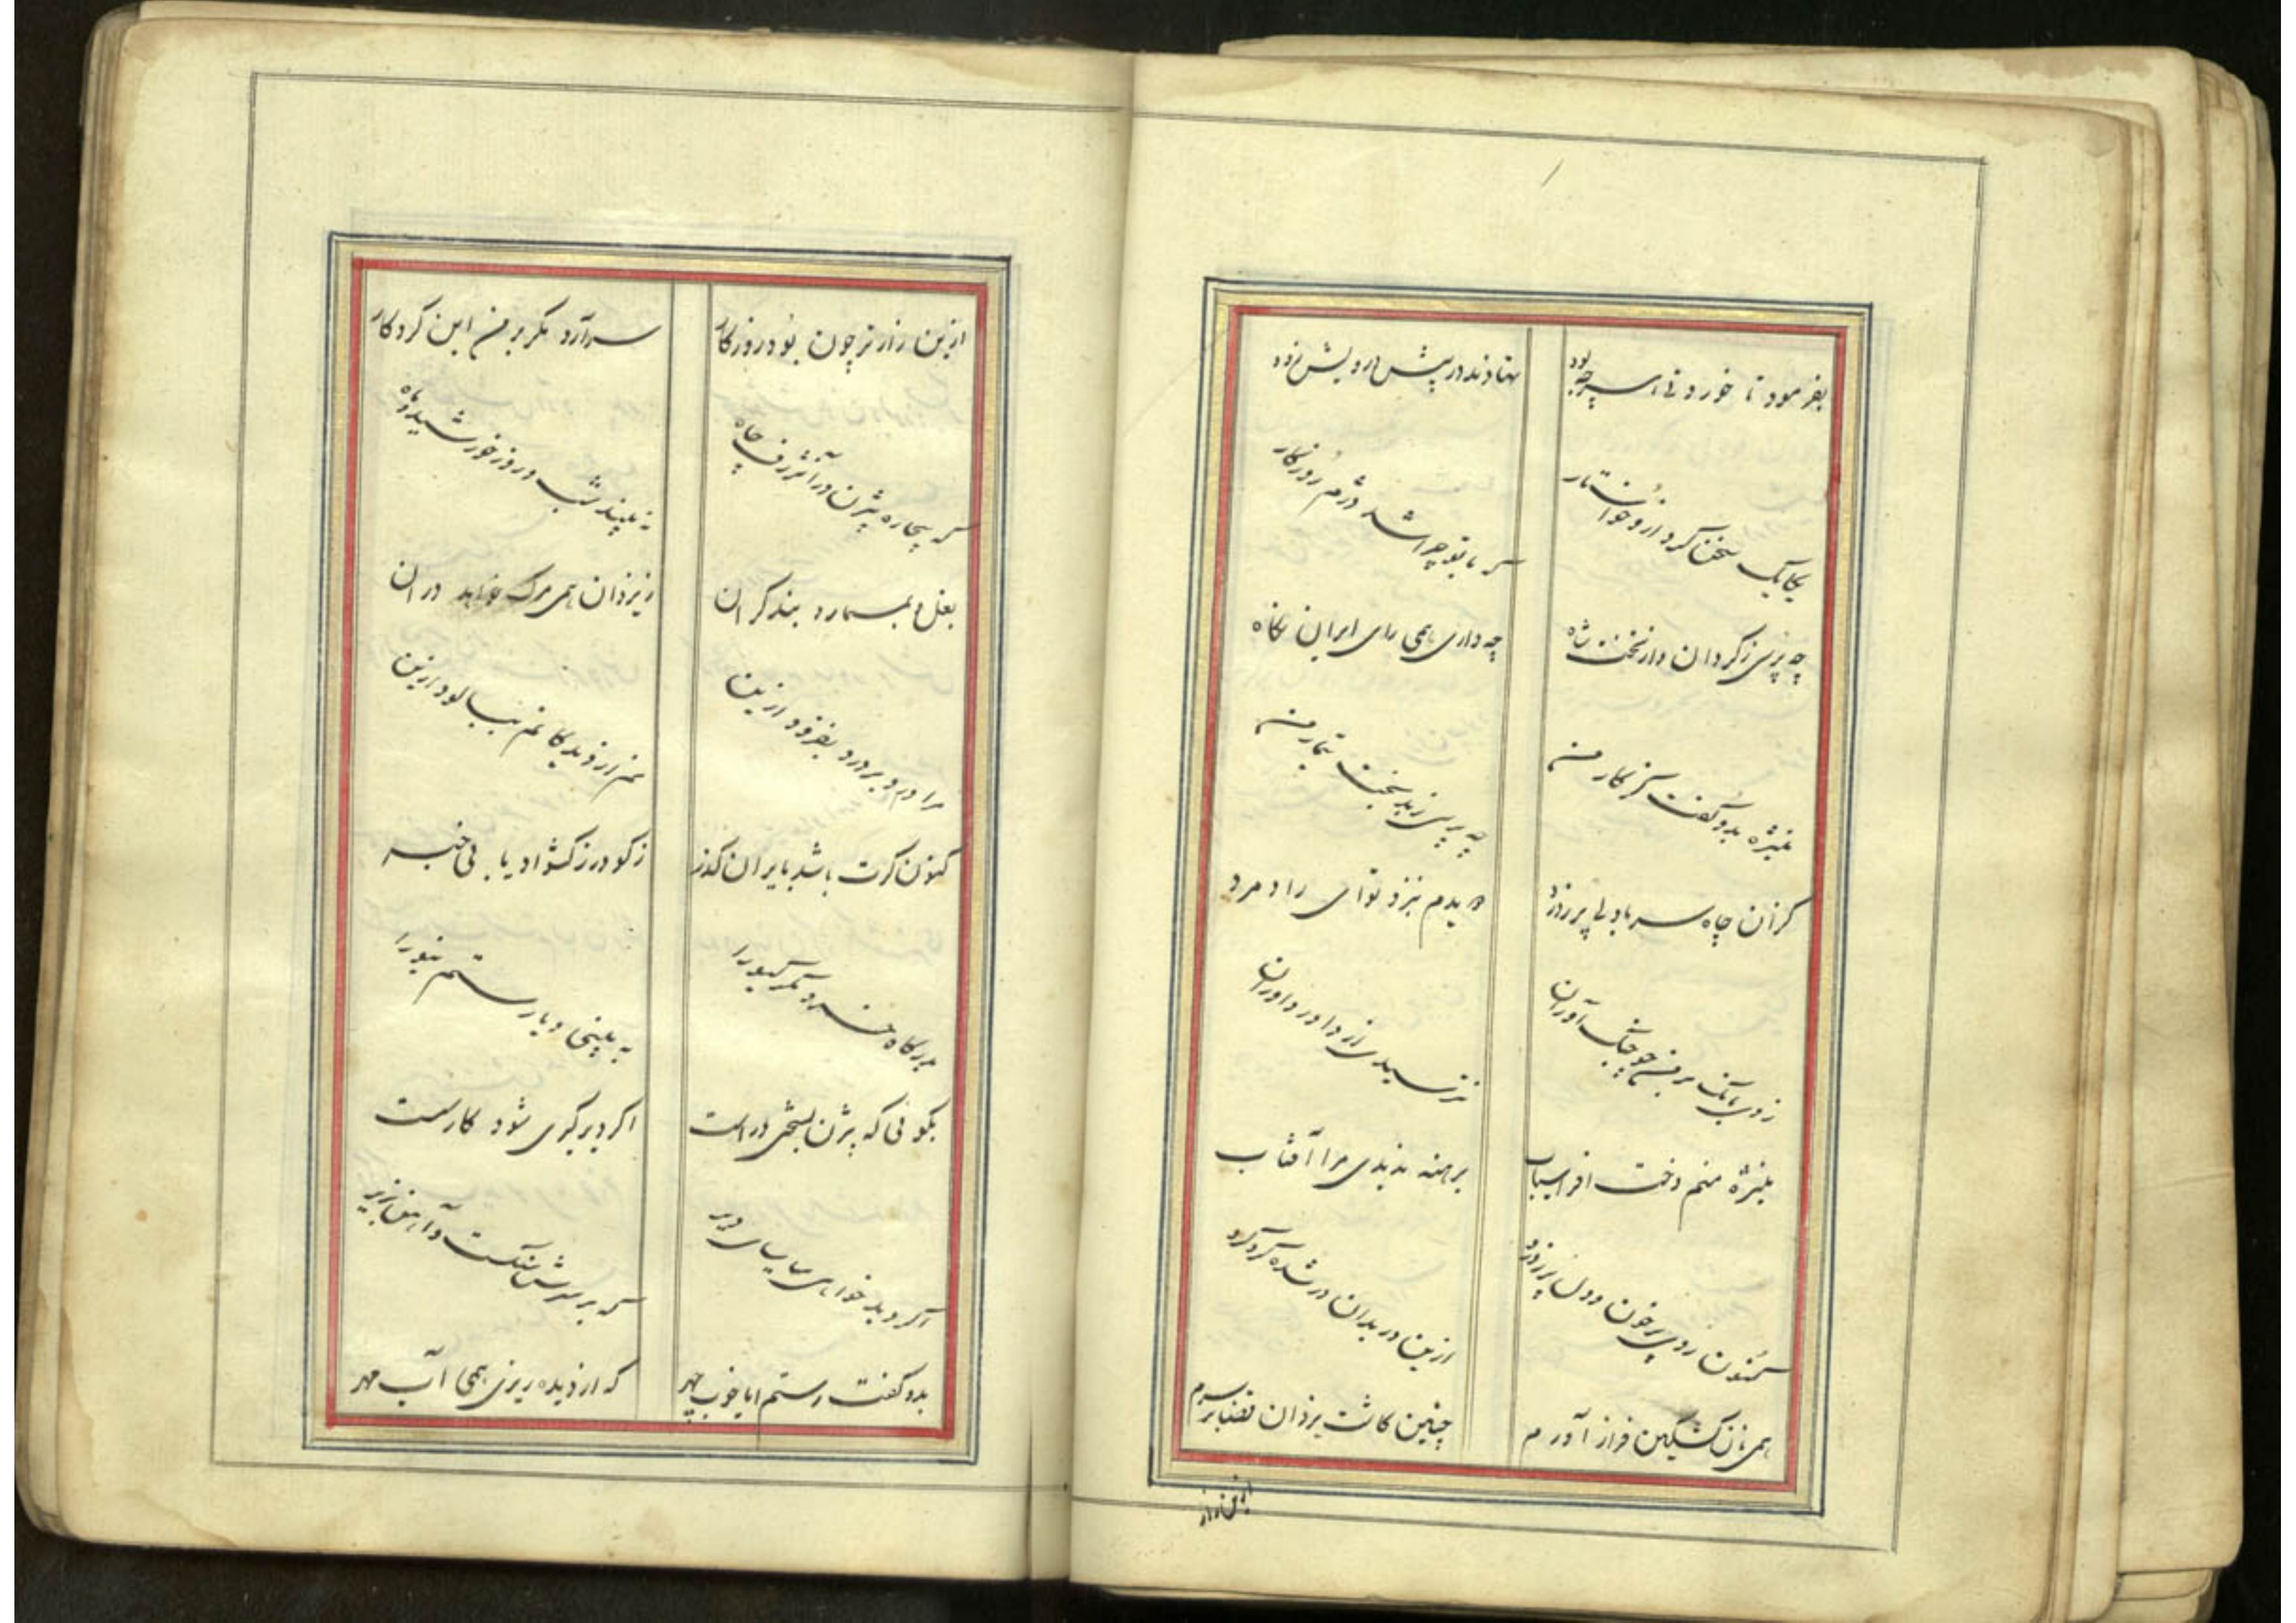 بفرمود تا خوردنی هر چه بود
نهادند در پیش درویش زود
یکایک سخن کرد ازو خواستار
که با تو چرا شد دژم روزکار
چه پرسی ز کردان و از تخت شاه
چه داری همی رای ایران نکاه
منیژه بدو کفت کز کار من
چه پرسی ز بد بخت تیمار من
کزان چاه سر با دلی پر ز درد
دویدم بنزد تو ای راد مرد
زدی بانک بر من چو جنک آوران
نترسیدی از داور داوران
منیژه منم دخت افراسیاب
برهنه ندیدی مرا آفتاب
کنون دیده پرخون و دل پر ز درد
ازین در بدان در شده کرد کرد
همی نان کشکین فراز آورم
چنین کاشت یزدان قضا بر سرم
ازین زار
ازین زارتر چون بود روزکار
سر آرد مکر بر من این کردکار
که بیچاره بیژن در آن ژرف چاه
نه بیند شب و روز خورشید و ماه
بغل و بمسمار و بند کران
ز یزدان همی مرک خواهد دران
مرا درد بر درد بفزود ازین
نم از دیدکانم بپالود ازین
کنون کرت باشد بایران کذر
ز کودرز کشواد یابی خبر
بدرکاه خسرو مکر کیو را
به بینی و یا رستم نیو را
بکوئی که بیژن بسختی در است
اکر دیر کیری شود کار پست
اکر دید خواهی میاسای دیر
که بر سرش سنکست و آهن بزیر
بدو کفت رستم ایا خوب چهر
که از دیده ریزی همی آب مهر